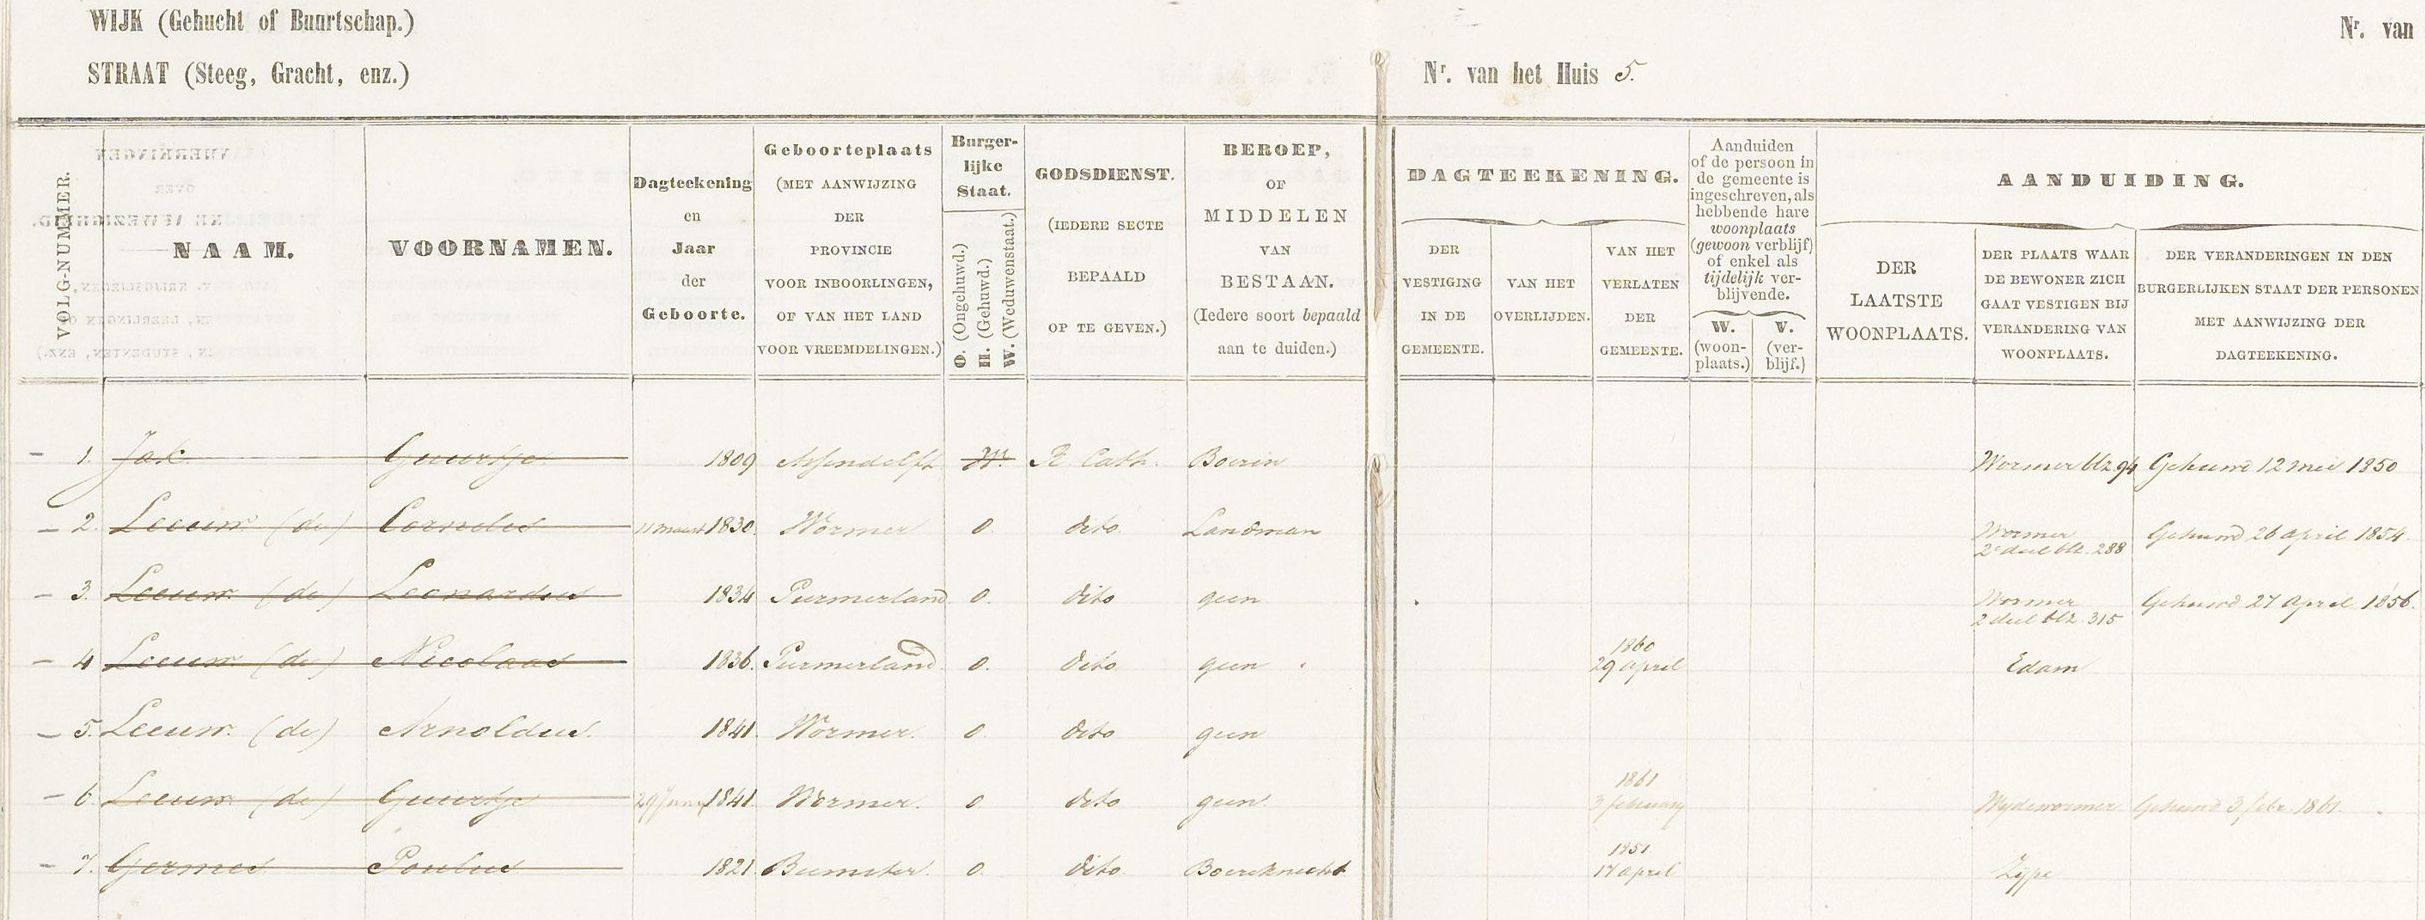 WIJK (Gehucht of Buurtschap.) Nr. van
STRAAT (Steeg, Gracht, enz.) Nr. van het Huis 5.
VOLG-NUMMER.
NAAM.
VOORNAMEN.
Dagteekening
en
Jaar
der
Geboorte.
Geboorteplaats
(MET AANWIJZING
DER
PROVINCIE
VOOR INBOORLINGEN,
OF VAN HET LAND
VOOR VREEMDELINGEN.)
Burger-
lijke
Staat.
O. (Ongehuwd.)
H. (Gehuwd.)
W. (Weduwenstaat.)
GODSDIENST.
(IEDERE SECTE
BEPAALD
OP TE GEVEN.)
BEROEP,
OF
MIDDELEN
VAN
BESTAAN.
(Iedere soort bepaald
aan te duiden.)
DAGTEEKENING.
DER
VESTIGING
IN DE
GEMEENTE.
VAN HET
OVERLIJDEN.
VAN HET
VERLATEN
DER
GEMEENTE.
Aanduiden
of de persoon in
de gemeente is
ingeschreven, als
hebbende hare
woonplaats
(gewoon verblijf)
of enkel als
tijdelijk ver-
blijvende.
W.
(woon-
plaats.)
V.
(ver-
blijf.)
AANDUIDING.
DER
LAATSTE
WOONPLAATS.
DER PLAATS WAAR
DE BEWONER ZICH
GAAT VESTIGEN BIJ
VERANDERING VAN
WOONPLAATS.
DER VERANDERINGEN IN DEN
BURGERLIJKEN STAAT DER PERSONEN
MET AANWIJZING DER
DAGTEEKENING.
1. Jak Guurtje 1809 Assendelft W. R. Cath. Boerin Wormer blz. 94 Gehuwd 12 mei 1850
2. Leeuw (de) Cornelis 11 maart 1830 Wormer O. dito Landman Wormer Gehuwd 26 april 1854.
2e deel blz. 288
3. Leeuw (de) Leonardus 1834 Purmerland O. dito geen Wormer Gehuwd 27 April 1856.
2 deel blz. 315
1860
4 Leeuw (de) Nicolaas 1836. Purmerland O. dito geen 29 april Edam
5. Leeuw (de) Arnoldus. 1841. Wormer. O. dito geen
1861
6. Leeuw (de) Guurtje 1841. Wormer. O. dito geen 3 february Wydewormer Gehuwd 3 febr. 1861.
1851
7. Germes Poulus 1821. O. dito Boereknecht 17 april Zype